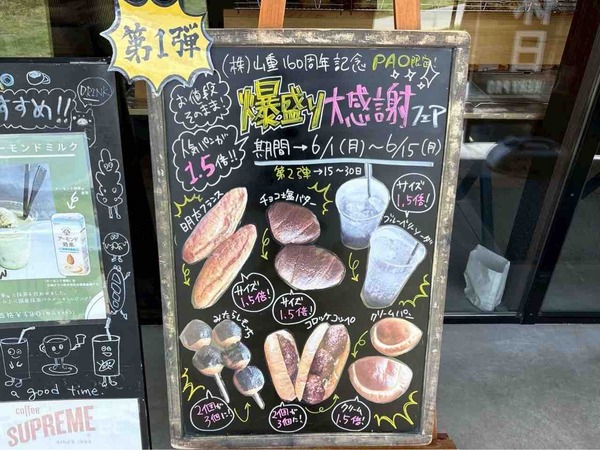 第1弾
(株)山重160周年記念 PAO限定
お値段そのまま!
爆盛り大感謝フェア
人気パンが1.5倍!!
期間→6/1(月)〜6/15(月)
第2弾→15〜30日
明太フランス
チョコ塩バター
サイズ1.5倍!
ブルーベリーソーダ
サイズ1.5倍!
サイズ1.5倍!
みたらしだんご
コロッケコッペ
クリームパン
2個が3個に!
2個が3個に!
クリーム1.5倍!
すすめ!!
DRINK
ーモンドミルク
アーモンド効果
a good time.
coffee
SUPREME